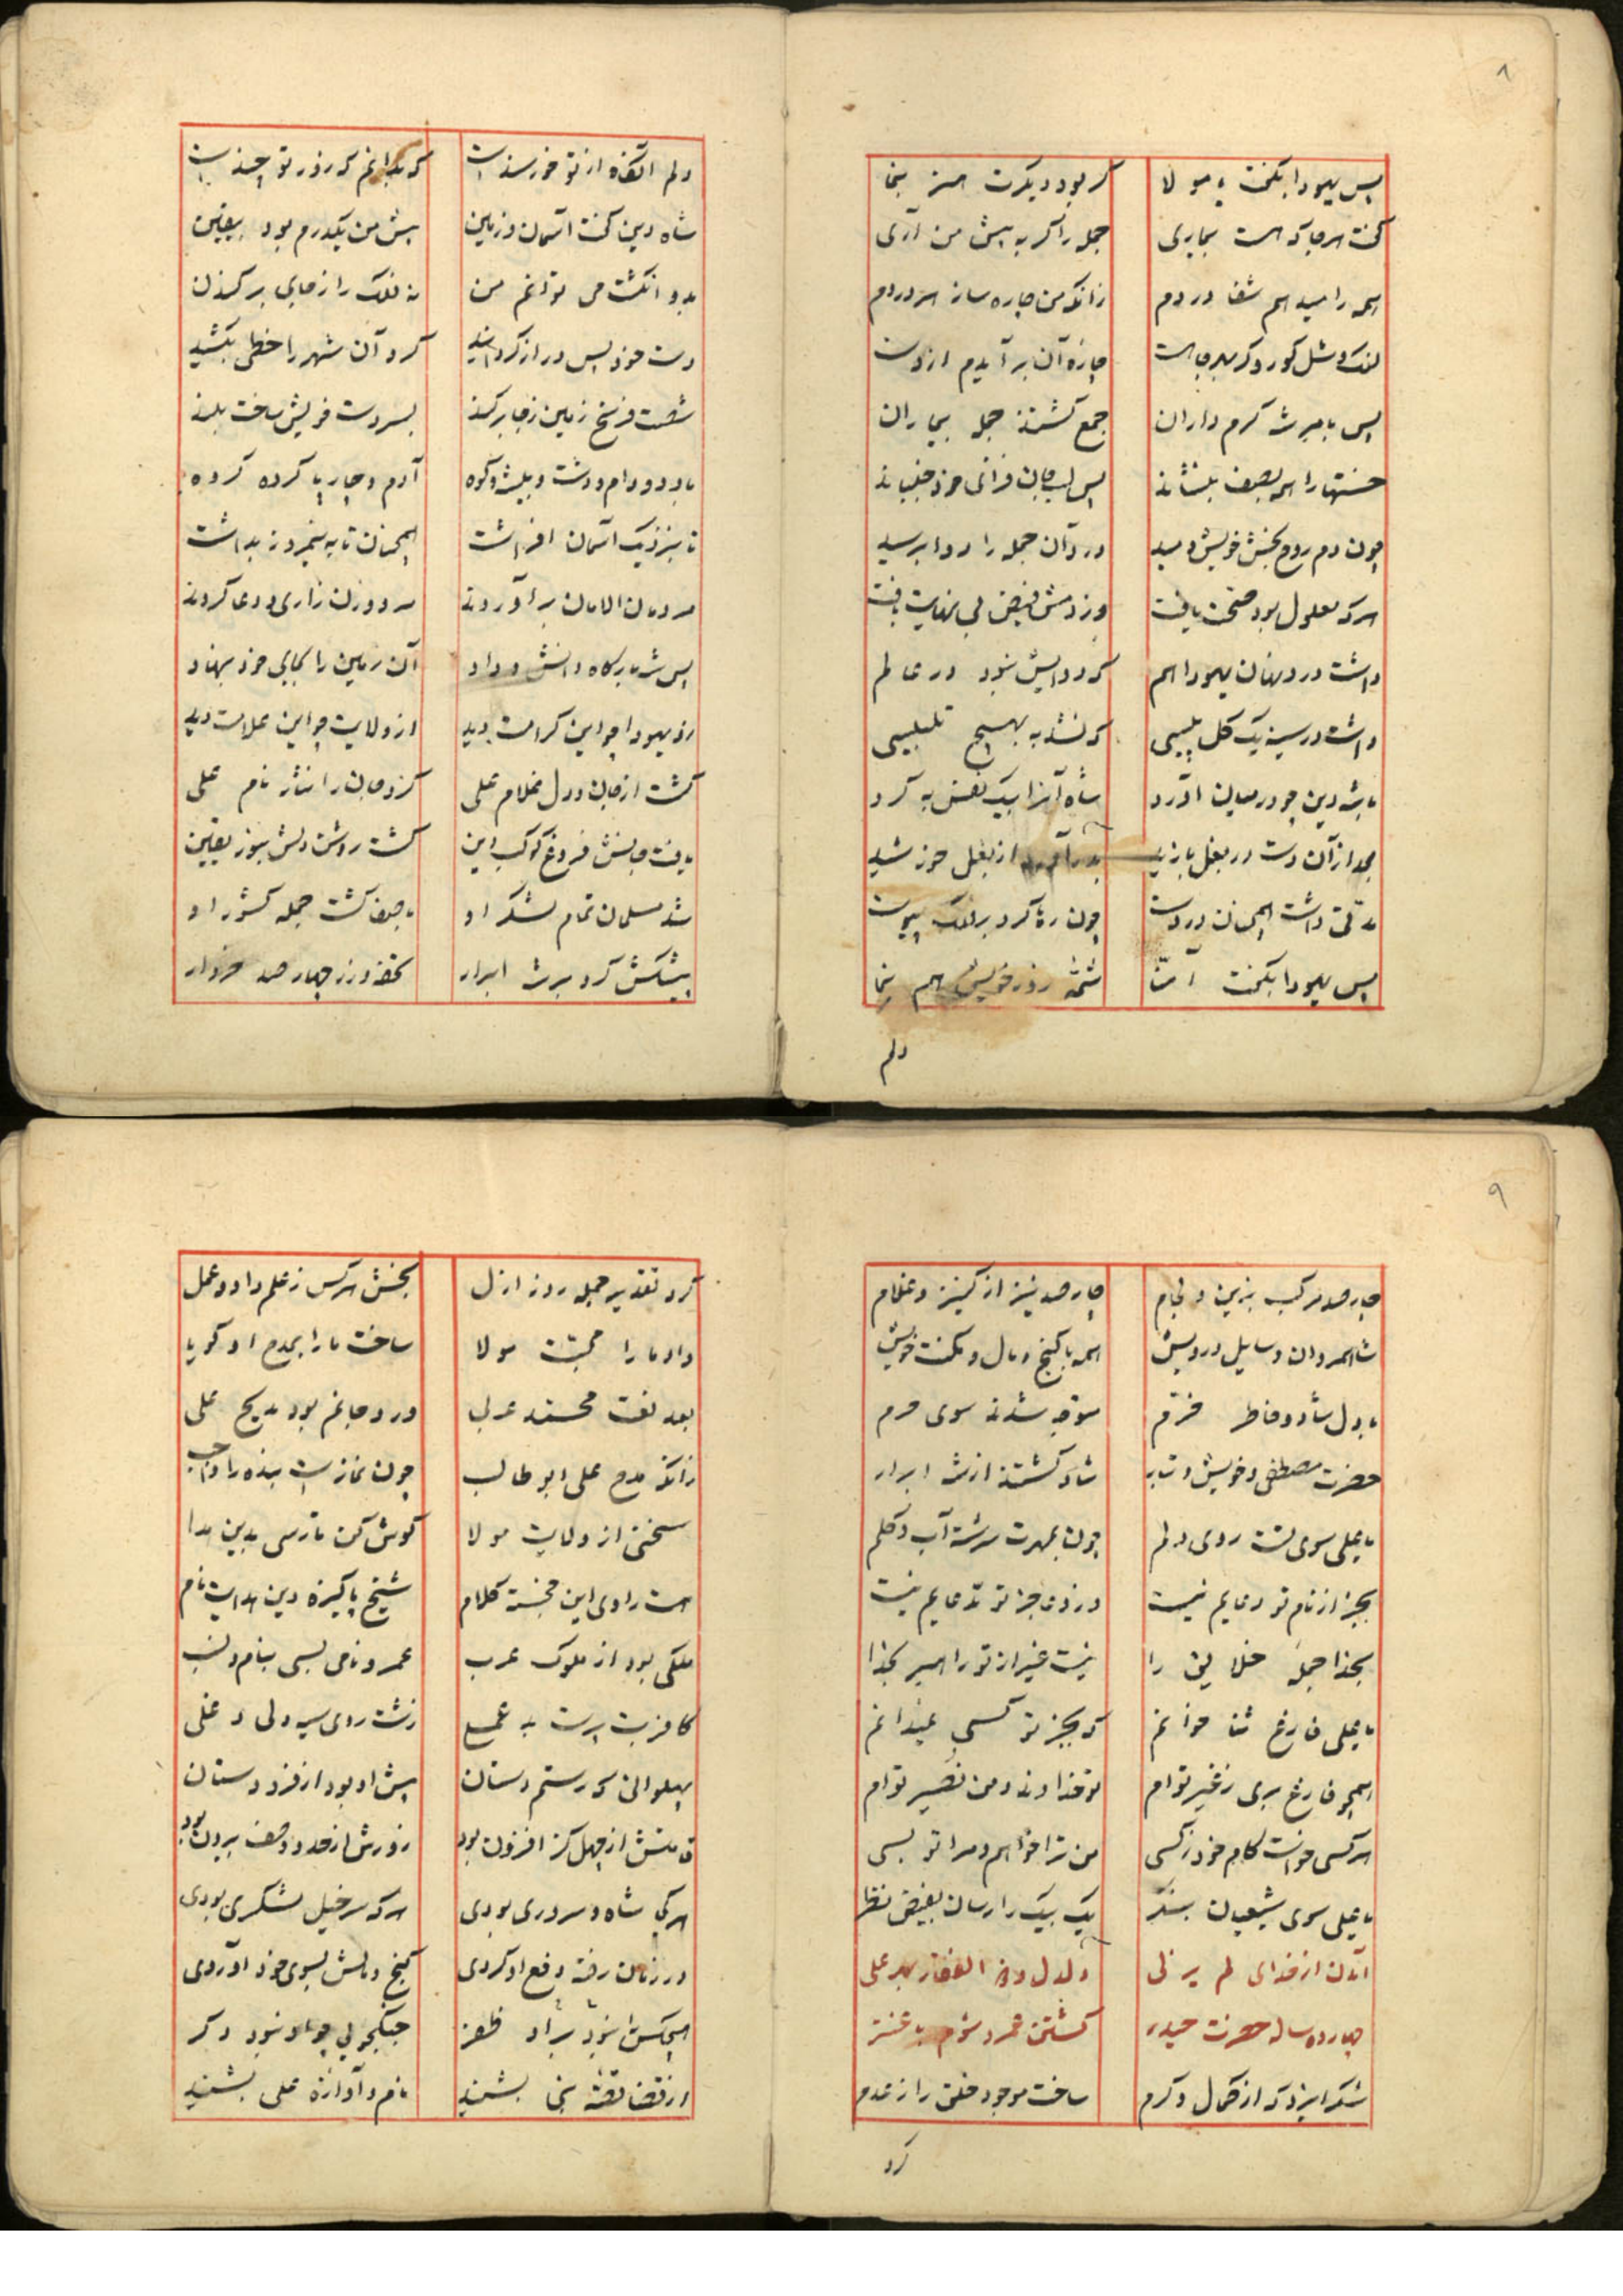 ۸
پس یهودا بگفت یا مولا گر بود دیگرت هنر بنما
گفت هر جا که هست بیماری جمله را گر به پیش من آری
همه را میدهم شفا در دم زانکه من چاره ساز هر دردم
لنک و شل کور و کر بهر جا هست چاره آن برآیدم از دست
پس بامر شه کرم داران جمع کشتند جمله بیماران
خستها را همه بصف بنشاند پس لب جان فزای خود جنباند
چون دم روح بخش خویش دمید درد آن جمله را دوا برسید
هرکه معلول بود صحت یافت وز دمش فیض بی نهایت یافت
داشت درد نهان یهودا هم که دوایش نبود در عالم
داشت در سینه یک کل پیسی که نشد به بهیچ تلبیسی
با شه دین چو در میان آورد شاه آنرا بیک نفس به کرد
بعد از آن دست در بغل بازید بدر آمد از بغل خورشید
مدتی داشت همچنان در دست چون رها کرد بر فلک پیوست
پس یهودا بگفت آمنا شمه زور خویش هم بنما
دلم
دلم آنگه از تو خورسند است که بدانم که زور تو چند است
شاه دین گفت آسمان و زمین پیش من یکدرم بود بیقین
بدو انکشت می توانم من نه فلک را ز جای برکندن
دست خود پس دراز گردانید گرد آن شهر را خطی بکشید
شصت فرسخ زمین ز جا برکند بسر دست خویش ساخت بلند
با دد و دام و دشت و بیشه و کوه آدم و چارپا گروه گروه
تا بنزدیک آسمان افراشت همچنان تا به نیمروز بداشت
مردمان الامان برآوردند مرد و زن زاری و دعا کردند
پس شه بارگاه دانش و داد آن زمین را بجای خود بنهاد
زو یهودا چو این کرامت دید از ولایت چو این علامت دید
گشت از جان و دل غلام علی کرد جان را نثار نام علی
یافت جانش فروغ کوکب این گشت روشن دلش بنور یقین
شد مسلمان تمام لشکر او با صفا گشت جمله کشور او
پیشکش کرد بر شه ابرار تحفه و زر چهار صد خروار
۹
چار صد مرکب بزین و لجام چار صد نیز از کنیز و غلام
شاهمردان و سایل درویش همه با گنج و مال و مکنت خویش
با دل شاد و خاطر خرم متوجه شدند سوی حرم
حضرت مصطفی و خویش و تبار شاد گشتند از شه ابرار
یا علی سوی تست روی دلم چون بمهرت سرشته آب و گلم
بجز از نام تو دعایم نیست در دو عالم جز تو مدعایم نیست
بخدا جمله خلایق را نیست غیر از تو راهبر بخدا
یا علی فارغ ثنا خوانم که بجز تو کسی نمیدانم
همچو فارغ بری ز غیر توام تو خداوند و من نصیر توام
هر کسی خواست کام خود ز کسی من ترا خواهم و مرا تو بسی
یا علی سوی شیعیان بنگر یک بیک را رسان بفیض نظر
آمدن از خدای لم یزلی دلدل و ذوالفقار بهر علی
چارده ساله حضرت حیدر کشتن عمرو شوم با عنتر
شکر ایزد که از کمال و کرم ساخت موجود خلق را ز عدم
کرد
کرد تقدیر جمله روز ازل بخش هرکس ز علم داد و عمل
داد ما را محبت مولا ساخت ما را بمدح او گویا
بعد نعت محمد عربی ورد جانم بود مدیح علی
زانکه مدح علی ابو طالب چون نماز است بنده را واجب
سخنی از ولایت مولا گوش کن تا رسی بدین مدعا
هست راوی این خجسته کلام شیخ پاکیزه دین هدایت نام
ملکی بود از ملوک عرب عمرو نامی بسی بنام و نسب
کافر بت پرست بد عملی زشت روی سیه دلی دغلی
پهلوانی که رستم دستان پیش او بود از فرو دستان
قامتش از چهل گز افزون بود زورش از حد وصف بیرون بود
هر کجا شاه و سروری بودی هرکه سرخیل لشکری بودی
در زمان رفته دفع او کردی گنج و مالش بسوی خود آوردی
هیچکس را نبود بر او ظفر جنگجویی چو او نبود دگر
از قضا قصه نبی بشنید نام و آوازه علی بشنید